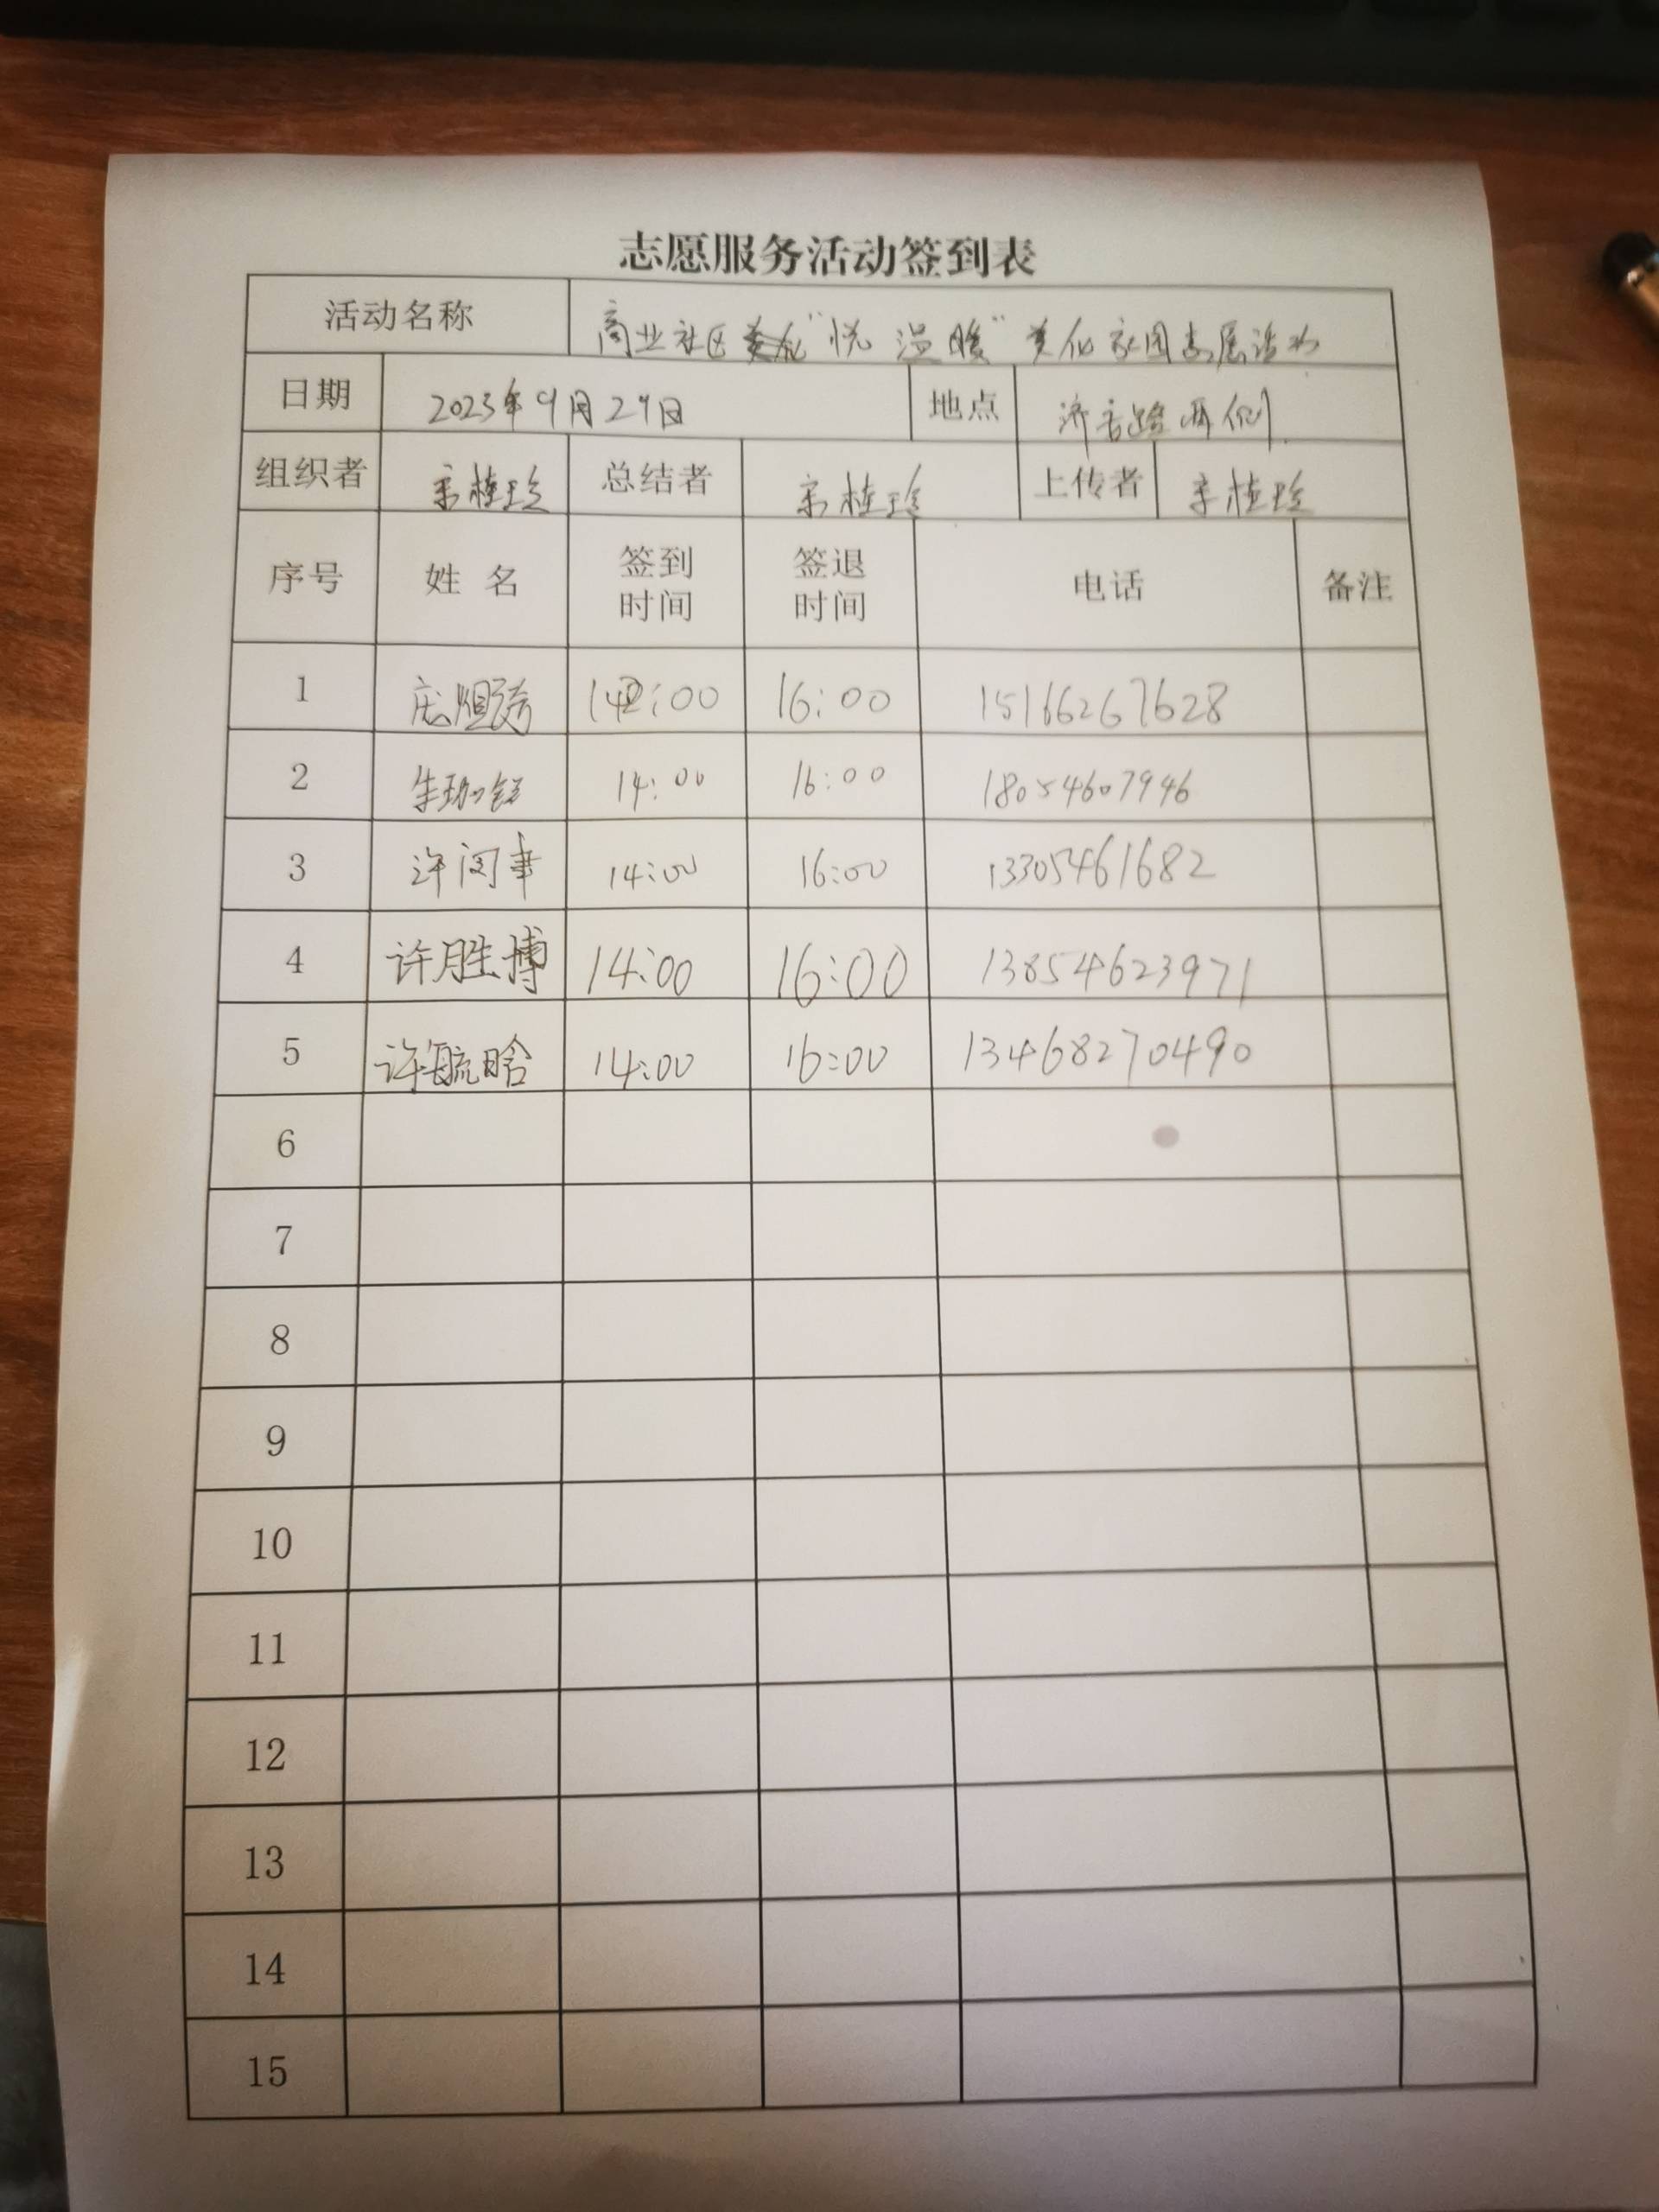 志愿服务活动签到表
活动名称 商业社区 "悦 温暖" 美化家园志愿活动
日期 2023年9月29日 地点 济 路两侧
组织者 桂珍 总结者 桂珍 上传者 桂珍
序号 姓 名 签到时间 签退时间 电话 备注
1 14:00 16:00 15166267628
2 14:00 16:00 18054607946
3 许闵 14:00 16:00 13305461682
4 许胜博 14:00 16:00 13854623971
5 许毓晗 14:00 16:00 13468270490
6
7
8
9
10
11
12
13
14
15